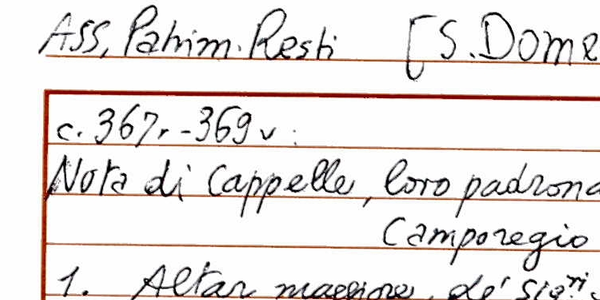 ASS, Patrim. Resti [S. Dome
c. 367r - 369v :
Nota di Cappelle, loro padrona
Camporegio
1. Altar maggiore, de' Sigri